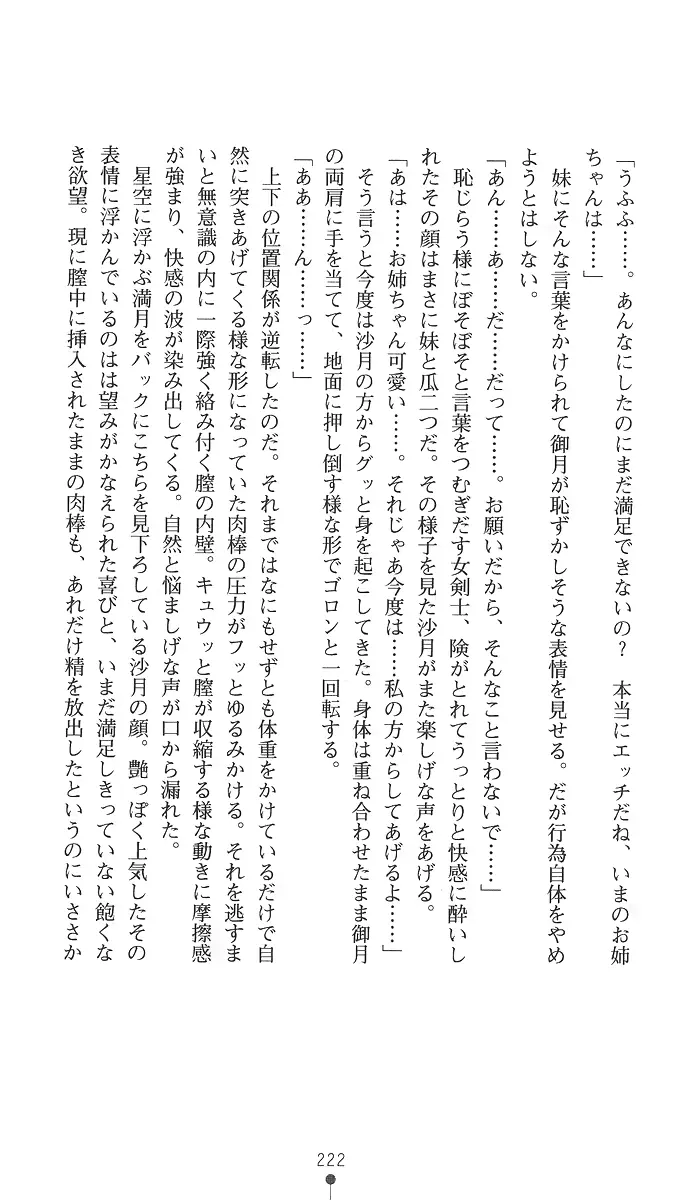 「うふふ……。あんなにしたのにまだ満足できないの？　本当にエッチだね、いまのお姉
ちゃんは……」
　妹にそんな言葉をかけられて御月が恥ずかしそうな表情を見せる。だが行為自体をやめ
ようとはしない。
「あん……あ……だ……だって……。お願いだから、そんなこと言わないで……」
　恥じらう様にぼそぼそと言葉をつむぎだす女剣士、険がとれてうっとりと快感に酔いし
れたその顔はまさに妹と瓜二つだ。その様子を見た沙月がまた楽しげな声をあげる。
「あは……お姉ちゃん可愛い……。それじゃあ今度は……私の方からしてあげるよ……」
　そう言うと今度は沙月の方からグッと身を起こしてきた。身体は重ね合わせたまま御月
の両肩に手を当てて、地面に押し倒す様な形でゴロンと一回転する。
「ああ……ん……っ……」
　上下の位置関係が逆転したのだ。それまではなにもせずとも体重をかけているだけで自
然に突きあげてくる様な形になっていた肉棒の圧力がフッとゆるみかける。それを逃すま
いと無意識の内に一際強く絡み付く膣の内壁。キュウッと膣が収縮する様な動きに摩擦感
が強まり、快感の波が染み出してくる。自然と悩ましげな声が口から漏れた。
　星空に浮かぶ満月をバックにこちらを見下ろしている沙月の顔。艶っぽく上気したその
表情に浮かんでいるのはは望みがかなえられた喜びと、いまだ満足しきっていない飽くな
き欲望。現に膣中に挿入されたままの肉棒も、あれだけ精を放出したというのにいささか
222